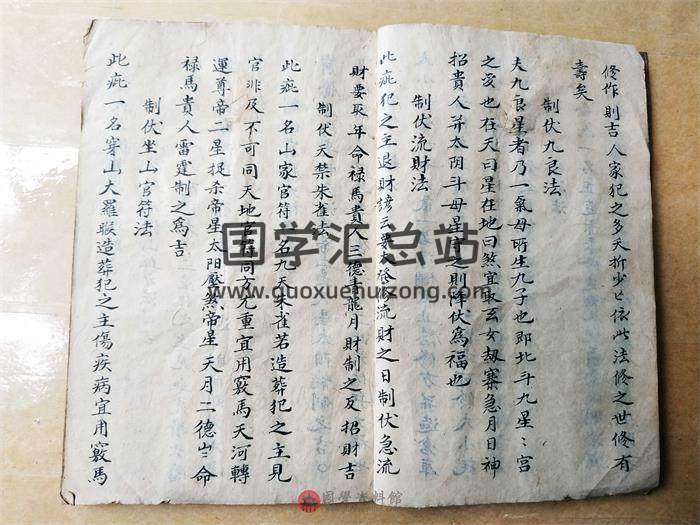 修作則吉人家犯之多夭折少亡依此法修之世修有
壽矣
制伏九良法
夫九良星者乃一氣母所生九子也即北斗九星〻宮
之炁也在天曰星在地曰煞宜取玄女刼寨急月日神
招貴人并太阴斗母星守之則降伏爲福也
制伏流財法
此疵犯之主退財諺云要大發修流財之日制伏急流
財要取年命禄馬貴人三德青龍月財制之反招財吉
制伏天禁朱雀法
此疵一名山家官符一名九天朱雀若造葬犯之主見
官非及不可同天地官符同方尤重宜用竅馬天河轉
運尊帝二星捉杀帝星太阳壓煞帝星天月二德岁命
禄馬貴人雷霆制之爲吉
制伏坐山官符法
此疵一名穿山大羅睺造葬犯之主傷疾病宜用竅馬
国学汇总站
www.guoxuehuizong.com
國學資料館